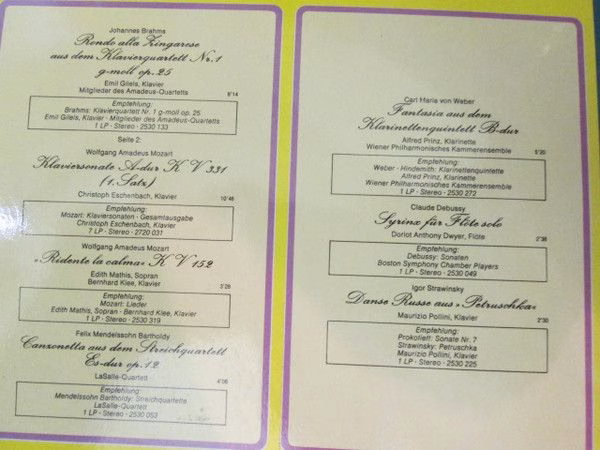 Johannes Brahms
Rondo alla Zingarese
aus dem Klavierquartett Nr. 1
g-moll op. 25
Emil Gilels, Klavier
Mitglieder des Amadeus-Quartetts
8'14
Empfehlung:
Brahms: Klavierquartett Nr. 1 g-moll op. 25
Emil Gilels, Klavier · Mitglieder des Amadeus-Quartetts
1 LP · Stereo · 2530 133
Seite 2:
Wolfgang Amadeus Mozart
Klaviersonate A-dur KV 331
(1. Satz)
Christoph Eschenbach, Klavier
10'46
Empfehlung:
Mozart: Klaviersonaten · Gesamtausgabe
Christoph Eschenbach, Klavier
7 LP · Stereo · 2720 031
Wolfgang Amadeus Mozart
»Ridente la calma« KV 152
Edith Mathis, Sopran
Bernhard Klee, Klavier
3'26
Empfehlung:
Mozart: Lieder
Edith Mathis, Sopran · Bernhard Klee, Klavier
1 LP · Stereo · 2530 319
Felix Mendelssohn Bartholdy
Canzonetta aus dem Streichquartett
Es-dur op. 12
LaSalle-Quartett
4'06
Empfehlung:
Mendelssohn Bartholdy: Streichquartette
LaSalle-Quartett
1 LP · Stereo · 2530 053
Carl Maria von Weber
Fantasia aus dem
Klarinettenquintett B-dur
Alfred Prinz, Klarinette
Wiener Philharmonisches Kammerensemble
5'20
Empfehlung:
Weber · Hindemith: Klarinettenquintette
Alfred Prinz, Klarinette
Wiener Philharmonisches Kammerensemble
1 LP · Stereo · 2530 272
Claude Debussy
Syrinx für Flöte solo
Doriot Anthony Dwyer, Flöte
2'38
Empfehlung:
Debussy: Sonaten
Boston Symphony Chamber Players
1 LP · Stereo · 2530 049
Igor Strawinsky
Danse Russe aus »Petruschka«
Maurizio Pollini, Klavier
2'30
Empfehlung:
Prokofieff: Sonate Nr. 7
Strawinsky: Petruschka
Maurizio Pollini, Klavier
1 LP · Stereo · 2530 225